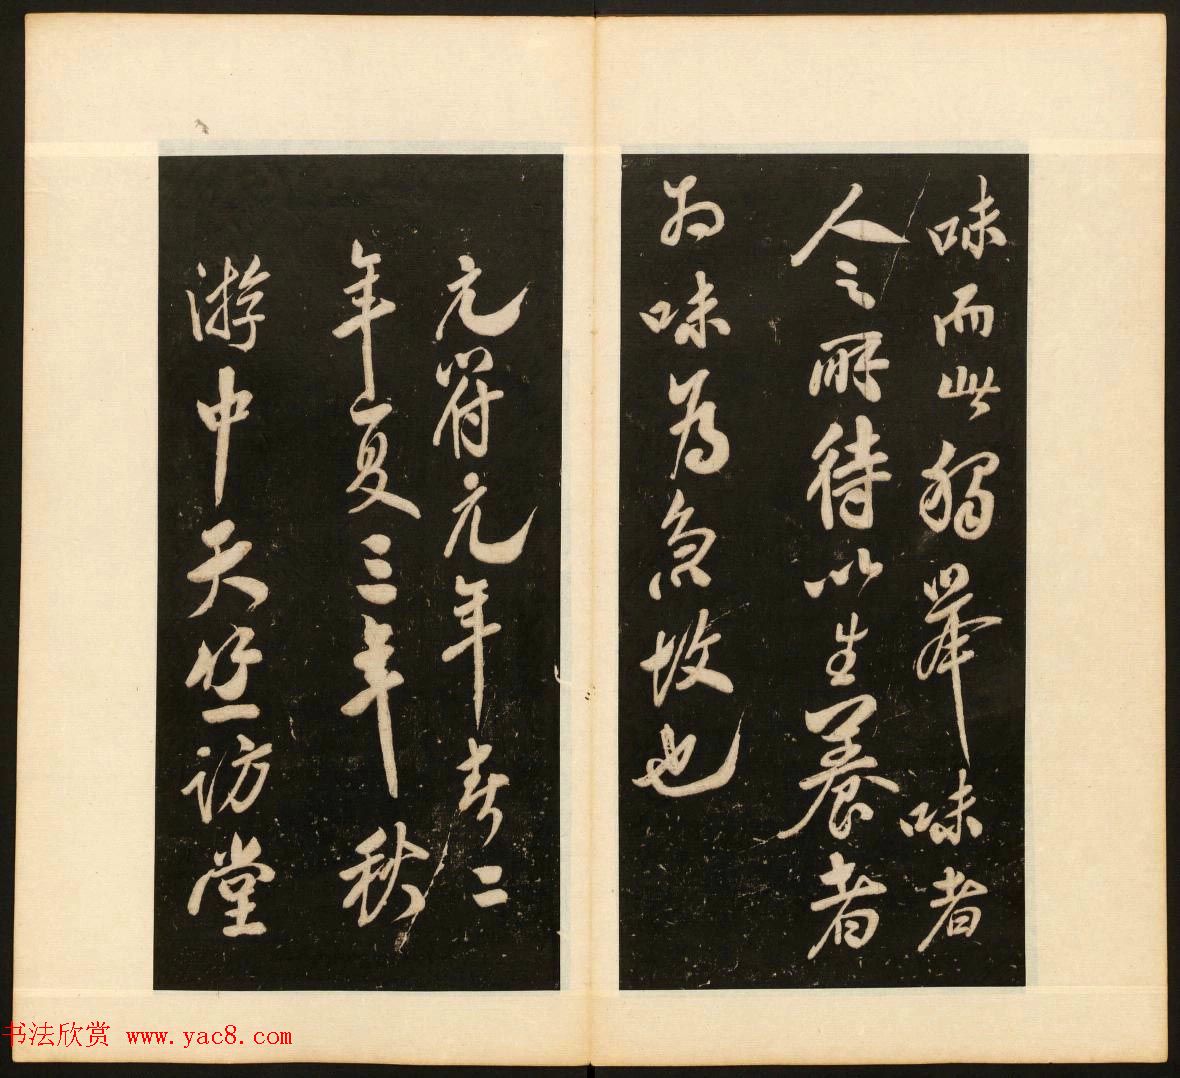 味而此独举味者
人之所待以生养者
为味为急故也
元符元年春二
年夏三年秋
游中天竺一访堂
书法欣赏 www.yac8.com